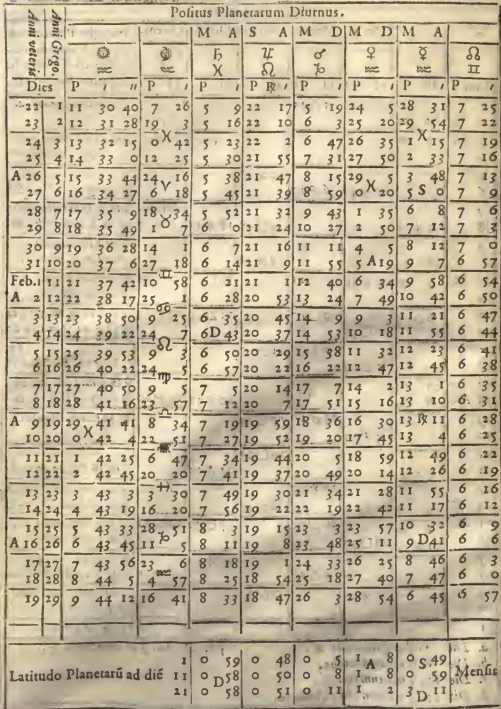 Positus Planetarum Diurnus.
Anni veteris Anni Grego. ☼ ☽ M A S A M D M D M A
♄ ♃ ♂ ♀ ☿ ☊
♒ ♒ ♓ ♌ ♑ ♒ ♒ ♊
Dies P ′ ″ P ′ P ′ P ℞ ′ P ′ P ′ P ′ P ′
22 1 11 30 40 7 26 5 9 22 17 5 19 24 5 28 31 7 25
23 2 12 31 28 19 3 5 16 22 10 6 3 25 20 29 54 7 22
24 3 13 32 15 0 ♓ 42 5 23 22 2 6 47 26 35 1 ♓ 15 7 19
25 4 14 33 0 12 25 5 30 21 55 7 31 27 50 2 33 7 16
A 26 5 15 33 44 24 16 5 38 21 47 8 15 29 5 3 48 7 13
27 6 16 34 27 6 ♈ 18 5 45 21 39 8 59 0 ♓ 20 5 S 0 7 9
28 7 17 35 9 18 34 5 52 21 32 9 43 1 35 6 8 7 6
29 8 18 35 49 1 ♉ 7 6 0 21 24 10 27 2 50 7 12 7 3
30 9 19 36 28 14 1 6 7 21 16 11 11 4 5 8 12 7 0
31 10 20 37 6 27 18 6 14 21 9 11 55 5 A 19 9 7 6 57
Feb. 1 11 21 37 42 10 ♊ 58 6 21 21 1 12 40 6 34 9 58 6 54
A 2 12 22 38 17 25 1 6 28 20 53 13 24 7 49 10 42 6 50
3 13 23 38 50 9 ♋ 25 6 35 20 45 14 9 9 3 11 21 6 47
4 14 24 39 22 24 7 6 D 43 20 37 14 53 10 18 11 55 6 44
5 15 25 39 53 9 ♌ 3 6 50 20 29 15 38 11 32 12 23 6 41
6 16 26 40 22 24 5 6 57 20 22 16 22 12 47 12 45 6 38
7 17 27 40 50 9 ♍ 5 7 5 20 14 17 7 14 2 13 1 6 35
8 18 28 41 16 23 57 7 12 20 7 17 51 15 16 13 10 6 31
A 9 19 29 41 41 8 ♎ 34 7 19 19 59 18 36 16 30 13 ℞ 11 6 28
10 20 0 ♓ 42 4 22 51 7 27 19 52 19 20 17 45 13 4 6 25
11 21 1 42 25 6 ♏ 47 7 34 19 44 20 5 18 59 12 49 6 22
12 22 2 42 45 20 20 7 41 19 37 20 49 20 14 12 26 6 19
13 23 3 43 3 3 ♐ 30 7 49 19 30 21 34 21 28 11 55 6 16
14 24 4 43 19 16 20 7 56 19 22 22 19 22 42 11 17 6 12
15 25 5 43 33 28 51 8 3 19 15 23 3 23 57 10 32 6 9
A 16 26 6 43 45 11 ♑ 5 8 11 19 8 23 48 25 11 9 D 41 6 6
17 27 7 43 56 23 6 8 18 19 1 24 33 26 25 8 46 6 3
18 28 8 44 5 4 ♒ 57 8 25 18 54 25 18 27 40 7 47 6 0
19 29 9 44 12 16 41 8 33 18 47 26 3 28 54 6 45 6 57
1 0 59 0 48 0 5 1 A 8 0 S. 49
Latitudo Planetarū ad diē 11 0 D 58 0 50 0 8 1 8 0 59 Mensis
21 0 58 0 51 0 11 1 2 3 D 11